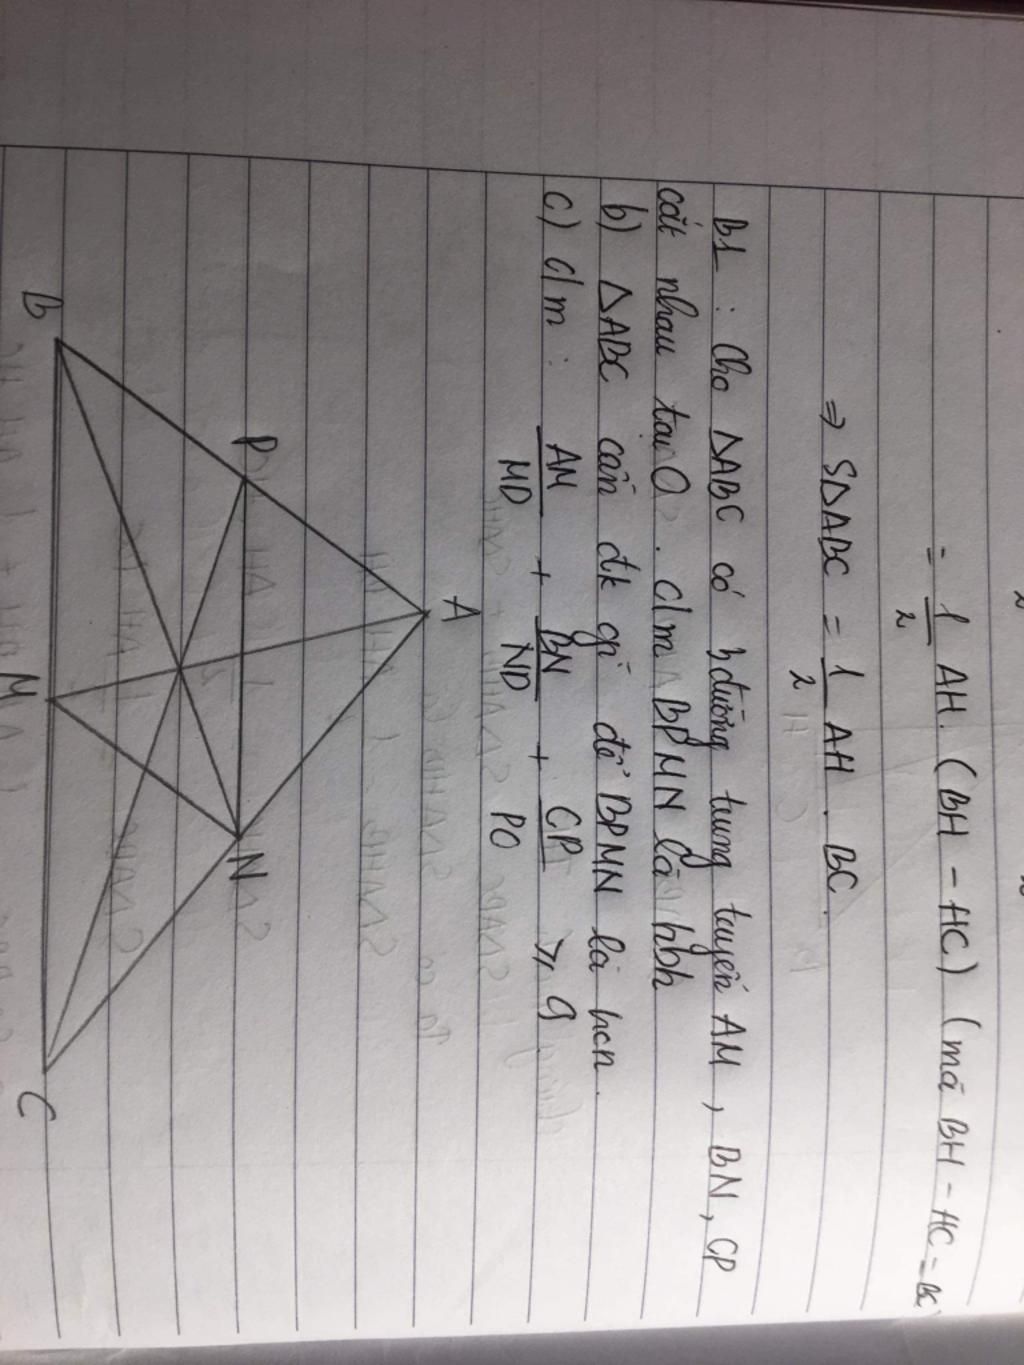 = 1/2 AH. (BH - HC) (mà BH - HC = BC)
⇒ SΔABC = 1/2 AH . BC.
B1 : Cho ΔABC có 3 đường trung tuyến AM, BN, CP
cắt nhau tại O. c/m BPMN là hbh
b) ΔABC cần đk gì để BPMN là hcn.
c) c/m : AM/MD + BN/ND + CP/PO ⩾ 9
A
P
N
B
M
C